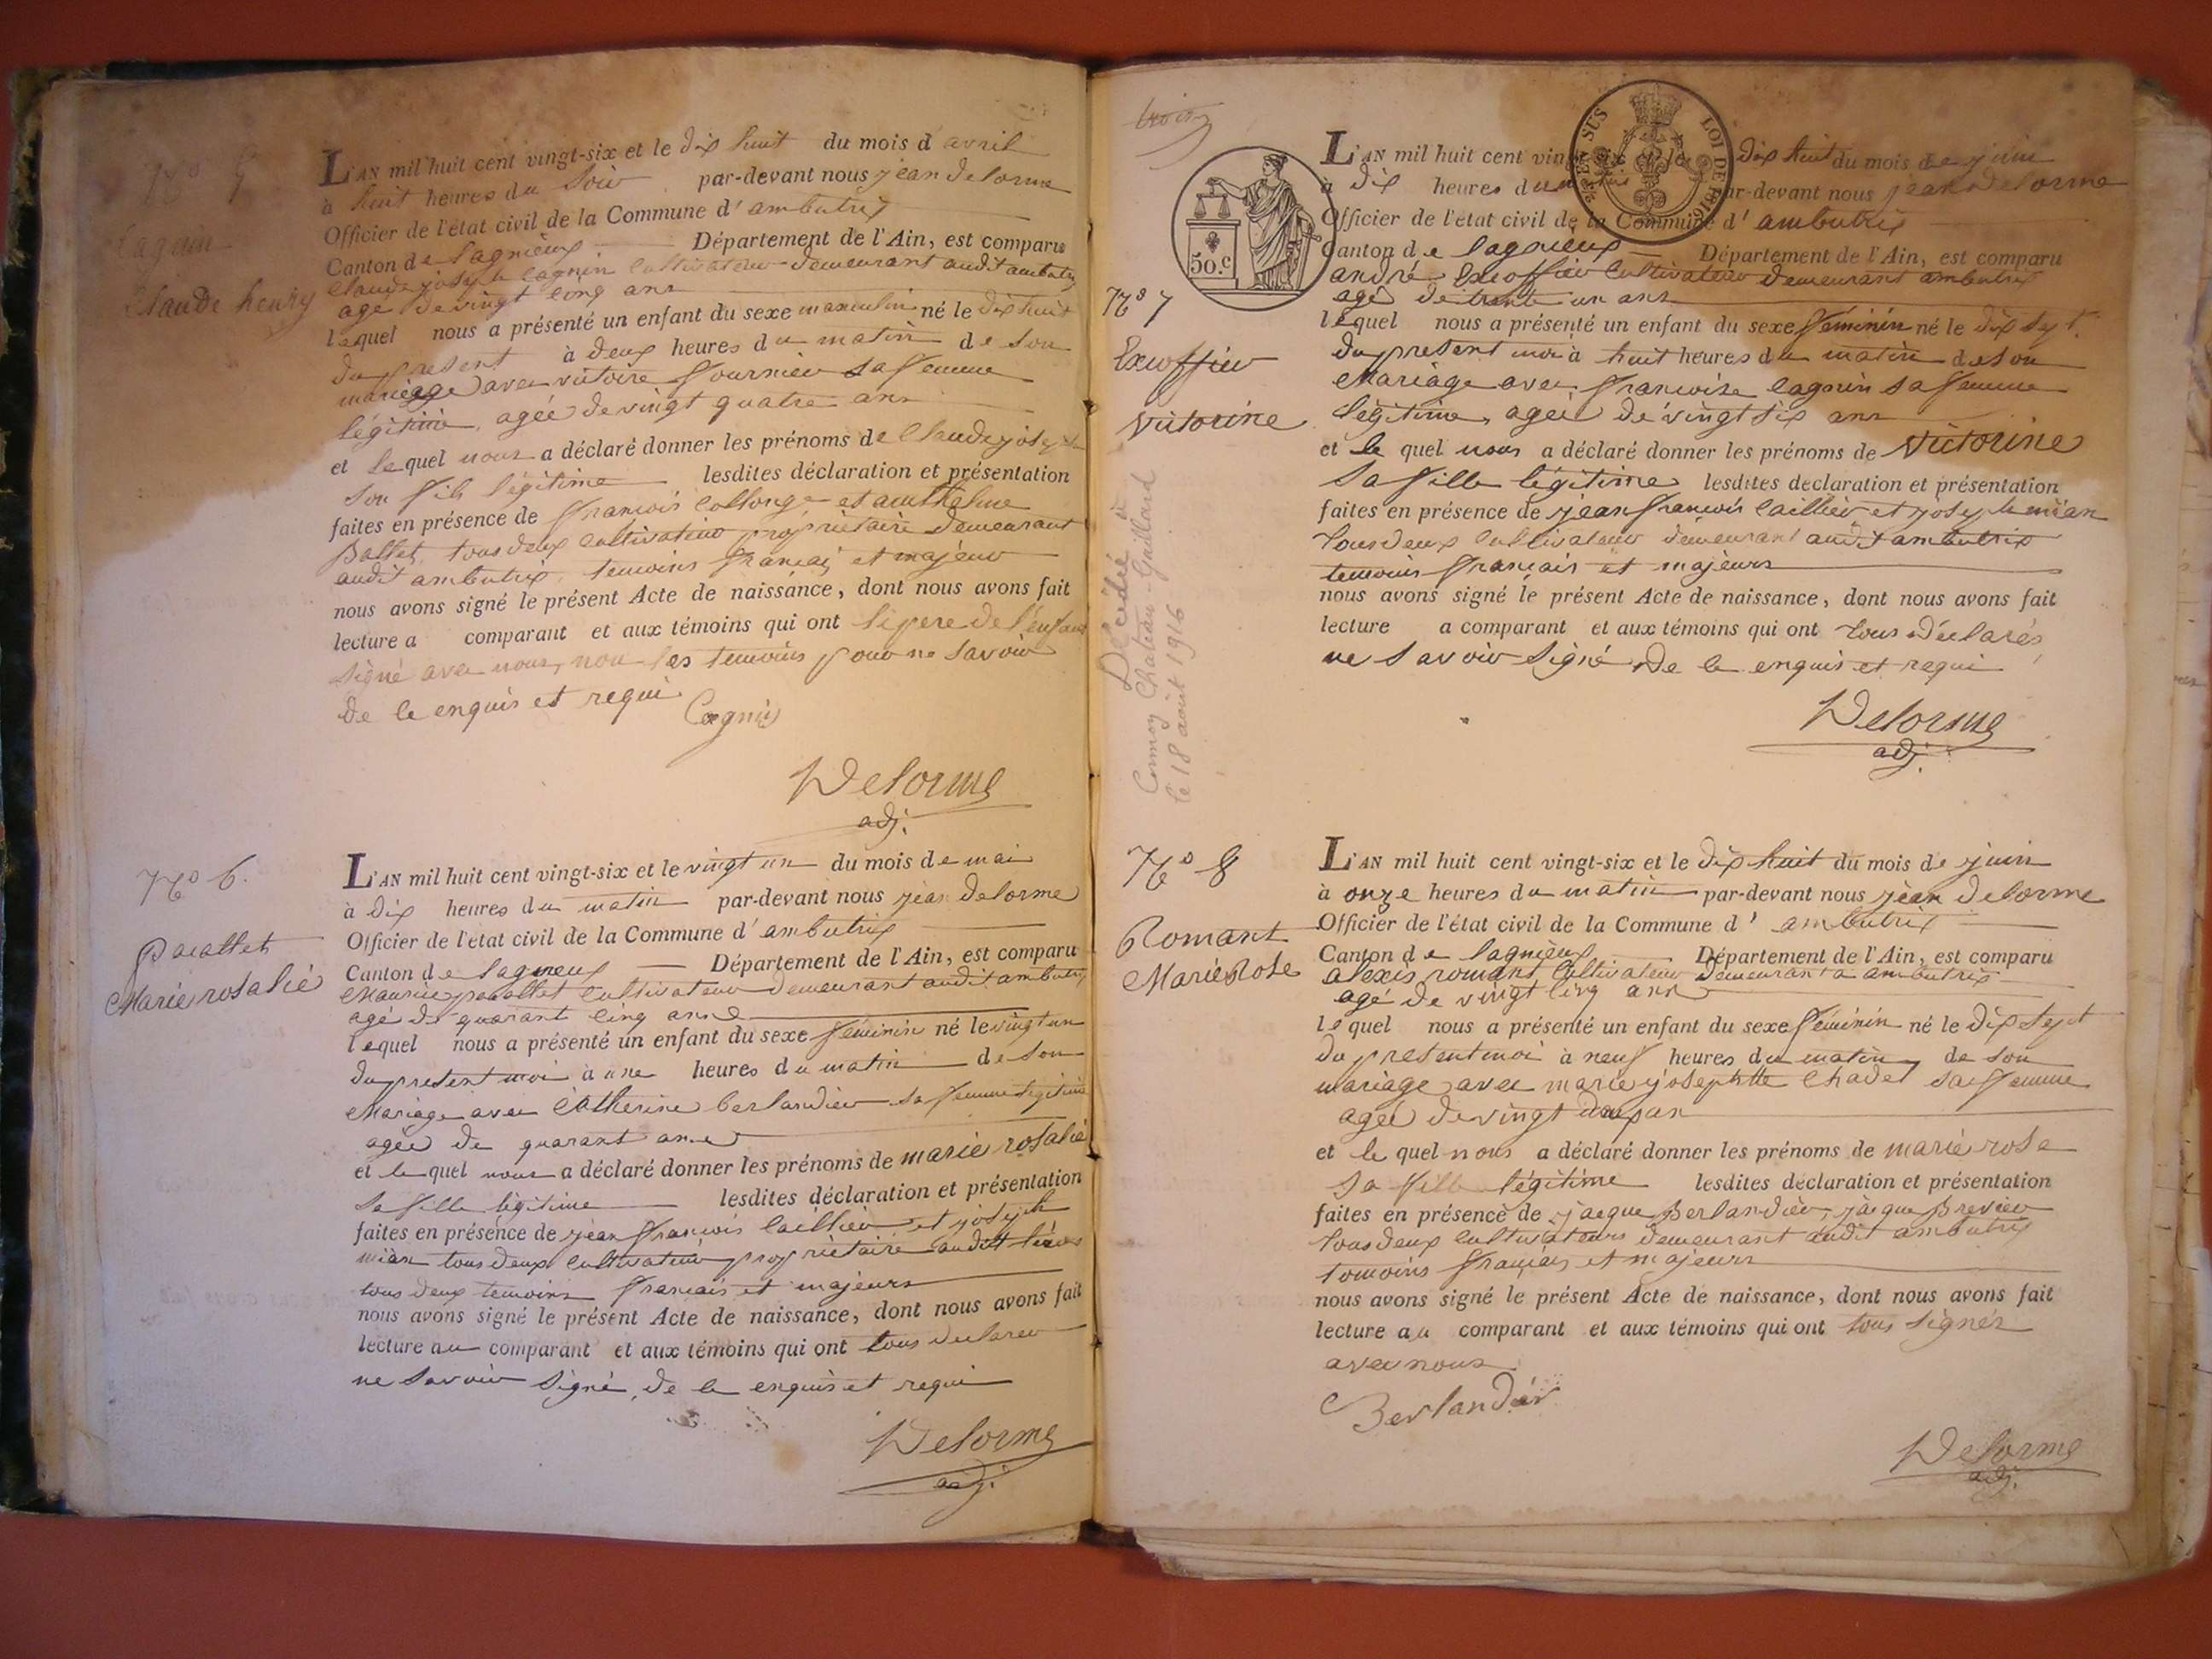 N° 5
Cagnin
Claude henry
L'AN mil huit cent vingt-six et le dix huit du mois d'avril
à huit heures du soir par-devant nous jean delorme
Officier de l'état civil de la Commune d'ambutrix
Canton de lagnieux Département de l'Ain, est comparu
Claude joseph cagnin cultivateur demeurant audit ambutrix
agé de vingt cinq ans
lequel nous a présenté un enfant du sexe masculin né le dix huit
du present à deux heures du matin de son
mariage avec victoire fournier sa femme
légitime, agée de vingt quatre ans
et le quel nous a déclaré donner les prénoms de Claude joseph
son fils légitime lesdites déclaration et présentation
faites en présence de françois collonge et anthelme
Ballet tous deux cultivateur propriétaire demeurant
audit ambutrix, temoins français et majeur
nous avons signé le présent Acte de naissance, dont nous avons fait
lecture a comparant et aux témoins qui ont le pere de l'enfant
signé avec nous, non les temoins pour ne savoir
de le enquis et requi
Cagnin
Delorme
adj.
N° 6.
Pacallet
Marie rosalie
L'AN mil huit cent vingt-six et le vingt un du mois de mai
à dix heures du matin par-devant nous jean delorme
Officier de l'état civil de la Commune d'ambutrix
Canton de lagnieux Département de l'Ain, est comparu
Maurice pacallet cultivateur demeurant audit ambutrix
agé de quarant cinq anne
lequel nous a présenté un enfant du sexe féminin né le vingt un
du present moi à une heures du matin de son
Mariage avec Catherine berlandier sa femme legitime
agée de quarant anne
et le quel nous a déclaré donner les prénoms de marie rosalie
sa fille légitime lesdites déclaration et présentation
faites en présence de jean françois caillier et joseph
mian tous deux cultivateur propriétaire audit
tous deux temoins francais et majeurs
nous avons signé le présent Acte de naissance, dont nous avons fait
lecture au comparant et aux témoins qui ont tous declarer
ne savoir signé, de le enquis et requi
Delorme
adj.
trois
50.c
2/10 EN SUS
LOI DE 1816
N° 7
Excoffier
Victorine
Décédée à
Cormoz Chateau-Gaillard
le 18 août 1916
L'AN mil huit cent vingt-six et le dix huit du mois de juin
à dix heures du matin par-devant nous jean delorme
Officier de l'état civil de la Commune d'ambutrix
Canton de lagnieux Département de l'Ain, est comparu
andré Excoffier Cultivateur demeurant ambutrix
agé de trente un ans
lequel nous a présenté un enfant du sexe féminin né le dix sept
du present moi à huit heures du matin de son
Mariage avec françoise cagnin sa femme
légitime, agée de vingt six ans
et le quel nous a déclaré donner les prénoms de Victorine
sa fille légitime lesdites déclaration et présentation
faites en présence de jean françois caillier et joseph mian
tous deux cultivateur demeurant audit ambutrix
temoins français et majeurs
nous avons signé le présent Acte de naissance, dont nous avons fait
lecture a comparant et aux témoins qui ont tous déclarés
ne savoir signé de le enquis et requi
Delorme
adj.
N° 8
Romant
Marie Rose
L'AN mil huit cent vingt-six et le dix huit du mois de juin
à onze heures du matin par-devant nous jean delorme
Officier de l'état civil de la Commune d'ambutrix
Canton de lagnieux Département de l'Ain, est comparu
alexis romant Cultivateur demeurant a ambutrix
agé de vingt cinq ans
lequel nous a présenté un enfant du sexe féminin né le dix sept
du present moi à neuf heures du matin, de son
mariage avec marie josephtte Chadel sa femme
agée de vingt deux an
et le quel nous a déclaré donner les prénoms de marie rose
sa fille légitime lesdites déclaration et présentation
faites en présence de jacque Berlandier, jacque Brevier
tous deux cultivateurs demeurant audit ambutrix
temoins français et majeurs
nous avons signé le présent Acte de naissance, dont nous avons fait
lecture au comparant et aux témoins qui ont tous signér
avec nous
Berlandier
Delorme
adj.